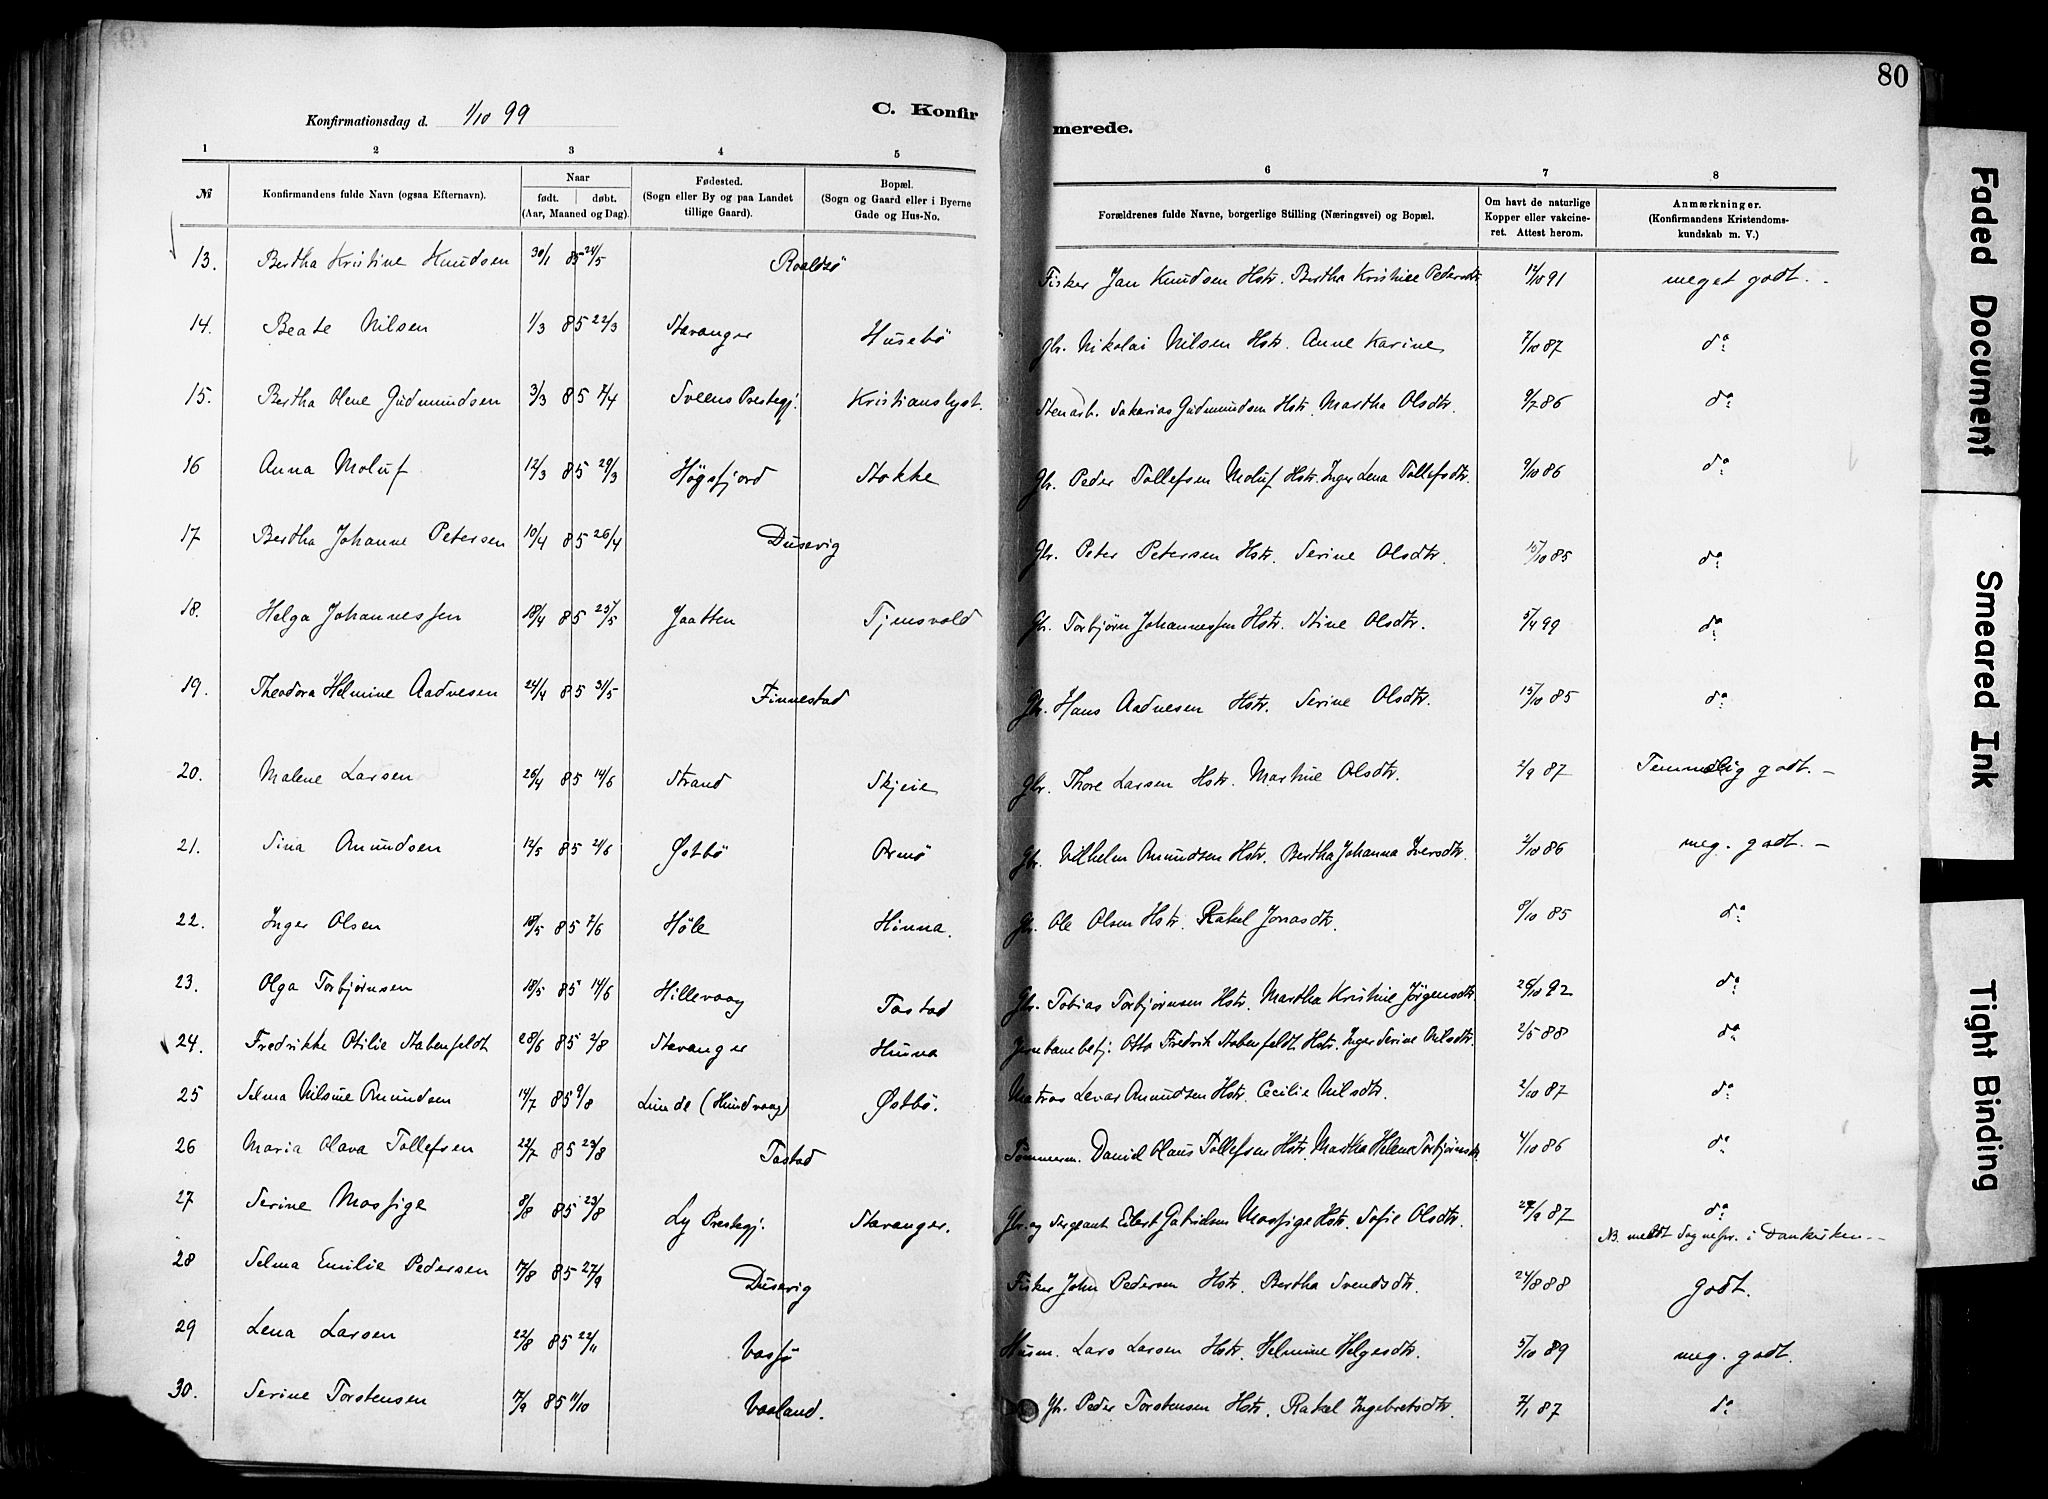 80
Konfirmationsdag d. 1/10 99
C. Konfirmerede.
1 2 3 4 5 6 7 8
№ Konfirmandens fulde Navn (ogsaa Efternavn). Naar født. døbt. (Aar, Maaned og Dag). Fødested. (Sogn eller By og paa Landet tillige Gaard). Bopæl. (Sogn og Gaard eller i Byerne Gade og Hus-No. Forældrenes fulde Navne, borgerlige Stilling (Næringsvei) og Bopæl. Om havt de naturlige Kopper eller vakcineret. Attest herom. Anmærkninger. (Konfirmandens Kristendomskundskab m. V.)
13. Bertha Kristine Knudsen 30/1 85 24/5 Roaldsö Fisker Jan Knudsen Hstr. Bertha Kristine Pedersdtr 14/10 91 meget godt.
14. Beate Nilsen 1/3 85 22/3 Stavanger Husebö Gbr. Nikolai Nilsen Hstr. Anne Karine 7/10 87 do
15. Bertha Olene Gudmundsen 3/3 85 7/4 Sveens Prestegj. Kristianslyst. Stenarb. Sakarias Gudmundsen Hstr. Martha Olsdtr. 9/7 86 do
16 Anna Moluf 12/3 85 29/3 Högsfjord Stokke Gbr. Peder Tollefsen Moluf Hstr. Inger Lena Tollefsdtr. 9/10 86 do
17 Bertha Johanne Petersen 10/4 85 26/4 Dusevig Gbr. Peter Petersen Hstr. Serine Olsdtr. 15/10 85 do
18. Helga Johannessen 18/4 85 25/5 Jaatten Tjensvold Gbr. Torbjörn Johannessen Hstr. Stine Olsdtr. 5/4 99 do
19. Theodora Helmine Aadnesen 24/4 85 31/5 Finnestad Gbr. Hans Aadnesen Hstr. Serine Olsdtr. 15/10 85 do
20. Malene Larsen 26/4 85 14/6 Strand Skjeie Gbr. Thore Larsen Hstr. Martine Olsdtr. 2/9 87 Temmelig godt. –
21. Sina Amundsen 12/5 85 21/6 Østbö Ormö Gbr. Vilhelm Amundsen Hstr. Bertha Johanna Iversdtr. 2/10 86 meg. godt. –
22. Inger Olsen 18/5 85 7/6 Høle Hinna. Gbr. Ole Olsen Hstr. Rakel Jonasdtr. 8/10 85 do
23. Olga Torbjörnsen 18/5 85 14/6 Hillevaag Tastad Gbr. Tobias Torbjörnsen Hstr. Martha Kristine Jörgensdtr. 28/10 92 do
24. Fredrikke Otilie Stabenfeldt 28/6 85 2/8 Stavanger Hinna Jernbanebetj. Otto Fredrik Stabenfeldt Hstr. Inger Serine Nilsdtr. 2/5 88 do
25 Selma Nilsine Amundsen 14/7 85 9/8 Lunde (Hundvaag) Østbö. Matros Amundsen Hstr. Cecilie Nilsdtr. 2/10 87 do
26 Maria Olava Tollefsen 22/7 85 23/8 Tastad Tömmerm. Daniel Olaus Tollefsen Hstr. Martha Helene Torbjörnsdtr. 4/10 86 do
27 Serine Mossige 8/8 85 23/8 Ly Prestegj. Stavanger. Gbr. og Sergeant Eilert Gabrielsen Mossige Hstr. Sofie Olsdtr. 27/9 87 do
NB. meldt Sognepr. i Domkirken. –
28 Selma Emilie Pedersen 17/8 85 27/9 Dusevig Fisker John Pedersen Hstr. Bertha Svendsdtr. 24/8 88 Godt.
29 Lena Larsen 22/8 85 22/11 Vassö Husm. Lars Larsen Hstr. Helmine Helgesdtr. 5/10 89 meg. godt.
30. Serine Torstensen 17/9 85 11/10 Vaaland. Gbr. Peder Torstensen Hstr. Rakel Ingebretsdtr. 7/1 87 do
Faded Document
Smeared Ink
Tight Binding